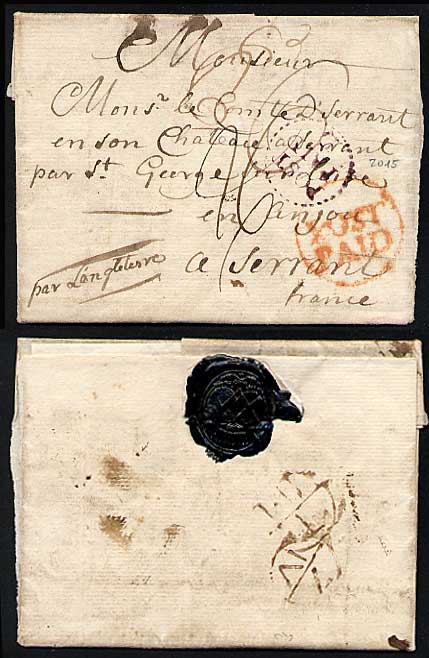 Monsieur
Mons.r le Comte D'Serrant
en son Chateau a Serrant
par St George sur Loire
2015
en Anjou
POST
PAID
par L'angleterre
a Serrant
france